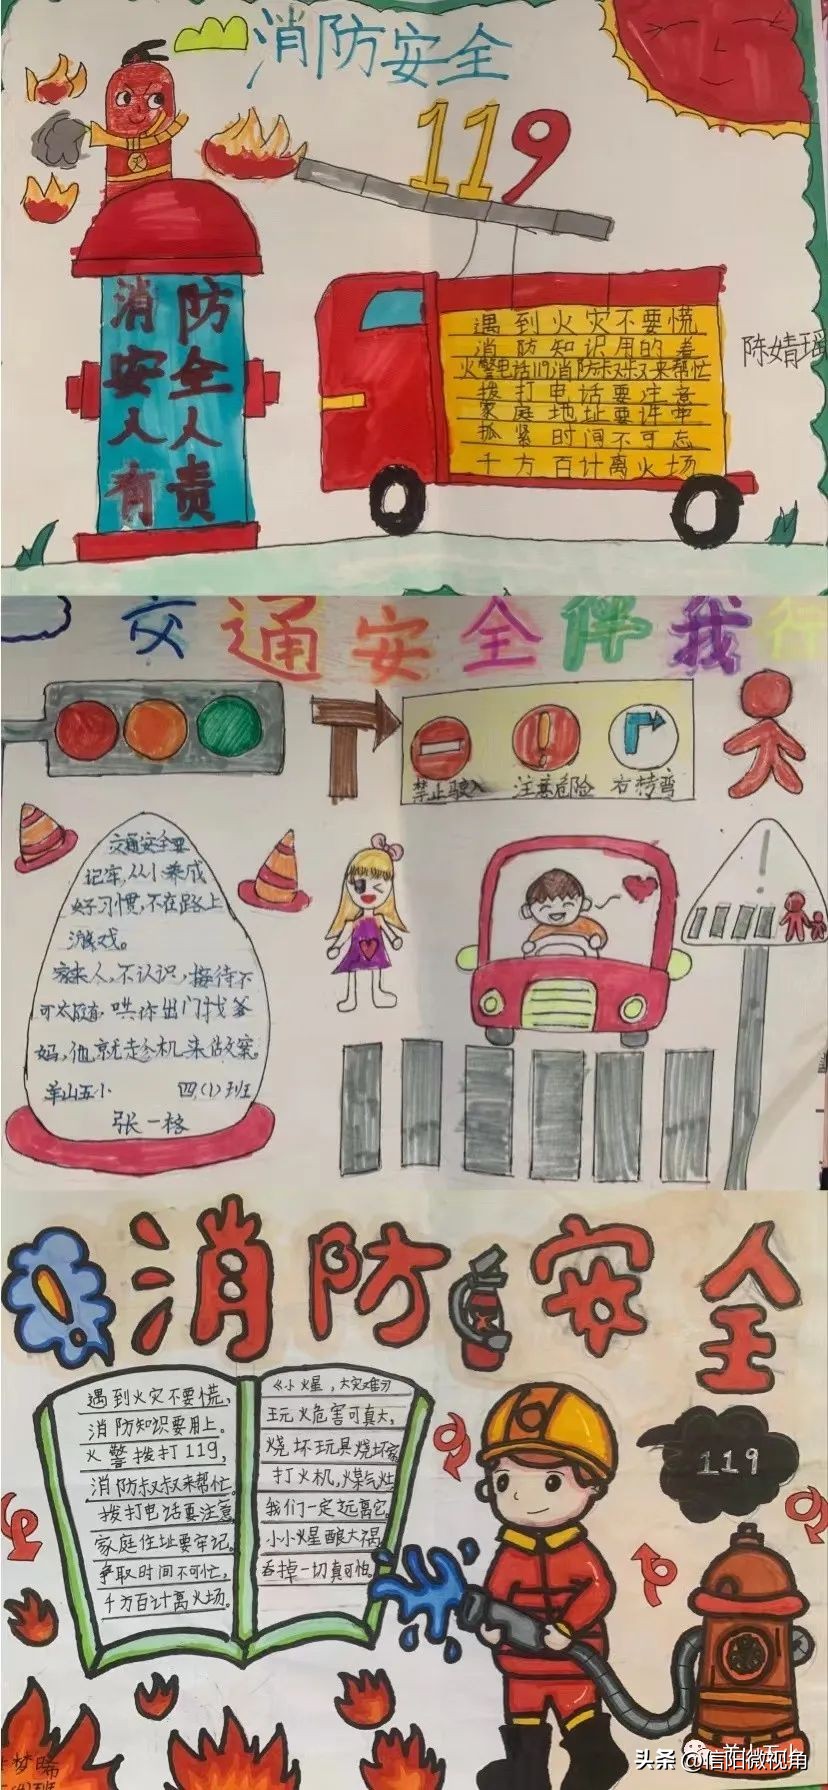 消防安全
119
消防
安全
人人
有责
遇到火灾不要慌
消防知识用的着
火警电话119消防叔叔来帮忙
拨打电话要注意
家庭地址要详
抓紧时间不可忘
千方百计离火场
陈婧瑶
交通安全伴我行
禁止驶入
注意危险
右转弯
交通安全要
记牢,从小养成
好习惯,不在路上
游戏。
家来人,不认识,接待不
可太随,哄你出门找爹
妈,他就走机来做案。
羊山五小 四(1)班
张一格
消防安全
遇到火灾不要慌,
消防知识要用上。
火警拨打119,
消防叔叔来帮忙。
拨打电话要注意
家庭住址要牢记。
争取时间不可忙,
千万百计离火场。
《小火星,大灾难》
玩火危害可真大,
烧坏玩具烧坏家
打火机,煤气灶
我们一定远离它
小小火星酿大祸
吞掉一切真可怕。
119
梦晞
头条@信阳微视角